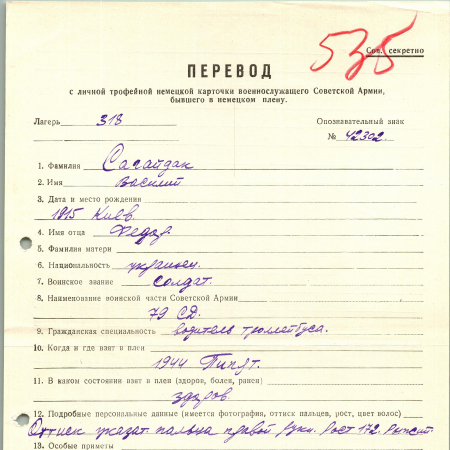 535
Сов. секретно
ПЕРЕВОД
с личной трофейной немецкой карточки военнослужащего Советской Армии,
бывшего в немецком плену.
Лагерь 318
Опознавательный знак
№ 42302.
1. Фамилия Сагайдак
2. Имя Василий
3. Дата и место рождения
1915 Киев
4. Имя отца Федор
5. Фамилия матери
6. Национальность украинец.
7. Воинское звание солдат.
8. Наименование воинской части Советской Армии
79 СД.
9. Гражданская специальность водитель троллейбуса.
10. Когда и где взят в плен
1944
11. В каком состоянии взят в плен (здоров, болен, ранен)
здоров
12. Подробные персональные данные (имеется фотография, оттиск пальцев, рост, цвет волос)
Оттиск указат. пальца правой руки. Рост 172.
13. Особые приметы